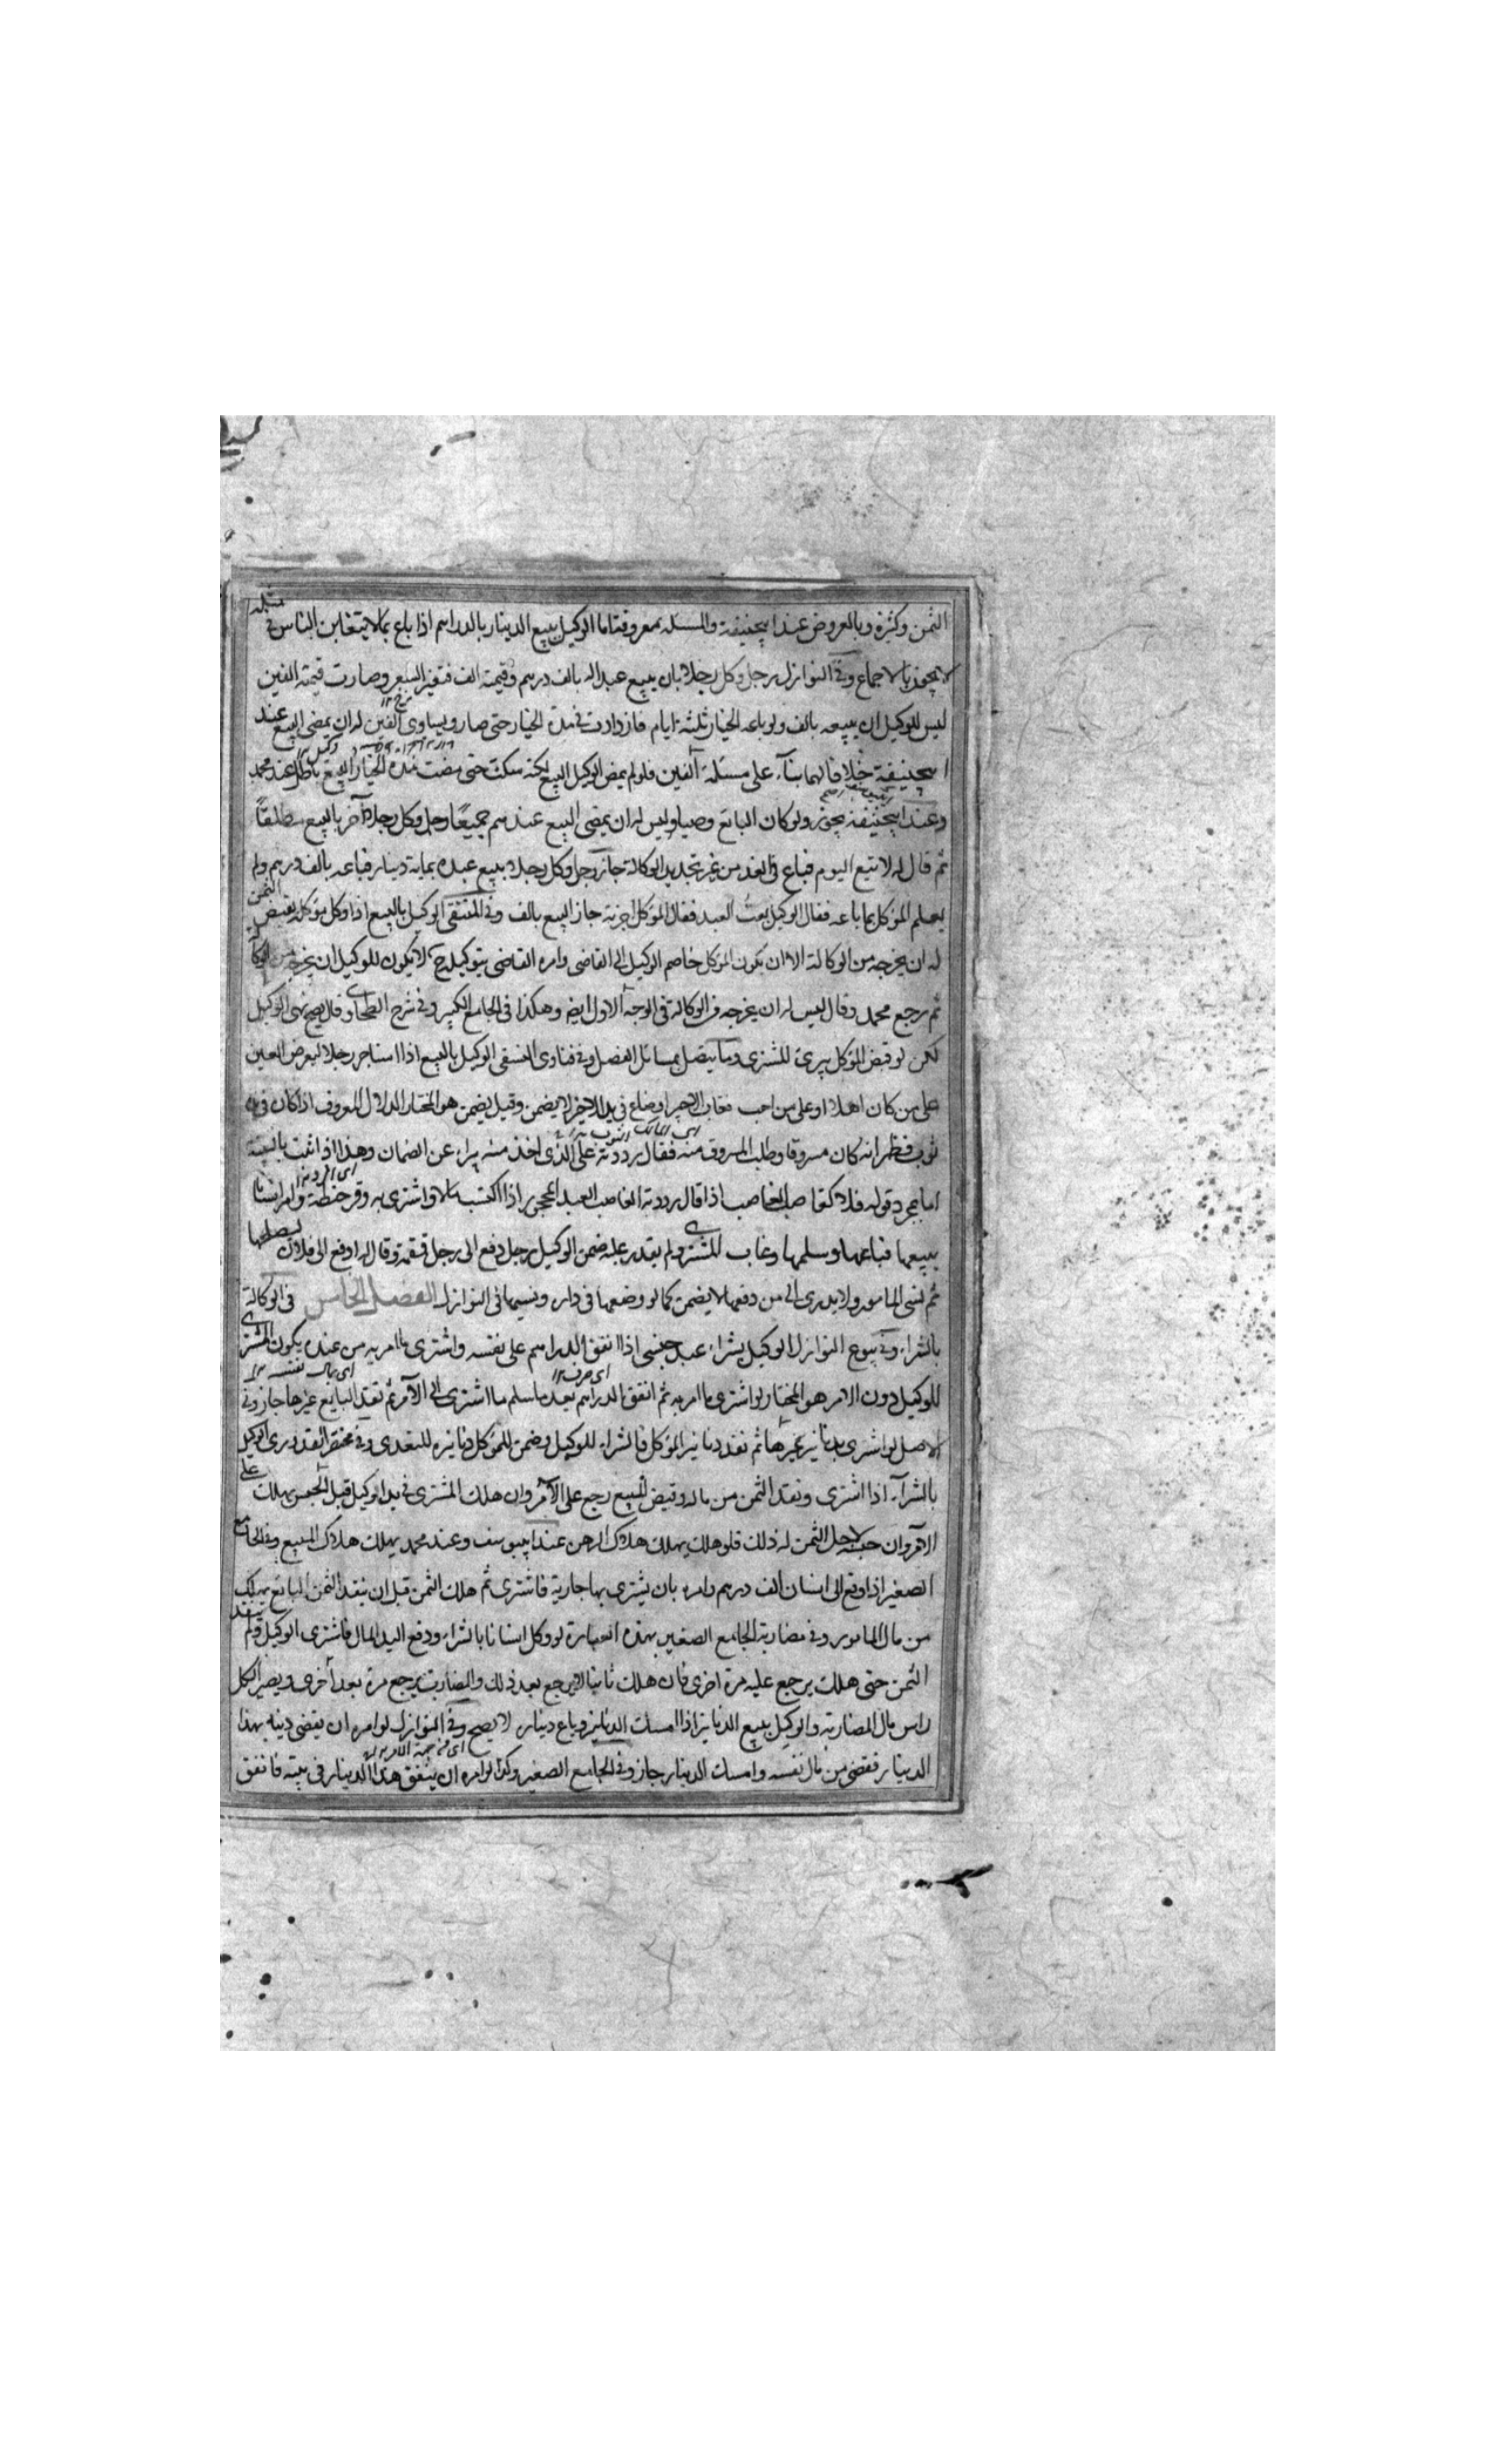 الثمن وكثيره وبالعروض عند ابيحنيفة والمسئلة معروفة اما الوكيل ببيع الدينار بالدراهم اذا باع بما لا يتغابن الناس في مثله
لا يجوز بالاجماع وفي النوازل رجل وكل رجلا بان يبيع عبدا له بالف درهم وقيمته الف فتغير السعر وصارت قيمته الفين
ليس للوكيل ان يبيعه بالف ولو باعه الخيار ثلثة ايام فازدادت في مدة الخيار حتى صار ويساوى الفين له ان يمضى البيع عند
ابيحنيفة خلافا لهما بناء على مسئلة الفين فلو لم يمض الوكيل البيع لكنه سكت حتى مضت مدة الخيار البيع باطل عند محمد
وعند ابيحنيفة يجوز ولو كان البائع وصيا وليس له ان يمضى البيع عندهم جميعا رجل وكل رجلا آخر بالبيع مطلقا
ثم قال له لا تبع اليوم فباع في الغد من غير تجديد الوكالة جاز رجل وكل رجلا ببيع عبده بماية دينار فباعه بالف درهم ولم
يعلم المؤكل بما باعه فقال الوكيل بعت العبد فقال المؤكل اجزته جاز البيع بالف وفي المنتقى الوكيل بالبيع اذا وكل مؤكله بقبض الثمن
له ان يخرجه من الوكالة الا ان يكون المؤكل خاصم الوكيل الى القاضى وامره القاضى بتوكيله ح لا يكون للوكيل ان يخرجه من الوكا
ثم رجع محمد وقال ليس له ان يخرجه من الوكالة في الوجه الاول ايضا وهكذا في الجامع الكبير وفي شرح الطحاوى قال يصح نهى الوكيل
لكن لو قبض المؤكل يبرئ المشترى ومما يتصل بمسائل الفصل وفي فتاوى النسفى الوكيل بالبيع اذا استاجر رجلا ليعرض العين
على من كان اهلا او على من احب فغاب الاجير او ضاع في يد الاجير لا يضمن وقيل يضمن هو المختار الدلال المعروف اذا كان في يده
ثوب فظهر انه كان مسروقا وطلب المسروق منه فقال رددته على الذى اخذ منه برء عن الضمان وهذا اذا اثبت بالبينة
اما بمجرد قوله فلا كغاصب الغاصب اذا قال رددته الغاصب العبد المحجور اذا اكتسب مالا واشترى به وقر حنطة وامر انسانا
ببيعها فباعها وسلمها وغاب المشترى ولم يقدر عليه ضمن الوكيل رجل دفع الى رجل قمقمة وقال له ادفع الى فلان ليصلحها
ثم نسى المامور ولا يدرى الى من دفعها لا يضمن كما لو وضعها في دار ونسيها في النوازل الفصل الخامس في الوكالة
بالشراء وفي بيوع النوازل الوكيل بشراء عبد جنسى اذا انفق الدراهم على نفسه واشترى ما امر به من عنده يكون المشترى
للوكيل دون الامر هو المختار لو اشترى ما امر به ثم انفق الدراهم بعد ما سلم ما اشترى الى الآمر ثم نقد البايع غيرها جاز وفي
الاصل لو اشترى بدنانير غيرها ثم نقد دنانير المؤكل فالشراء للوكيل وضمن للمؤكل دنانيره للتعدى وفي مختصر القدورى الوكيل
بالشراء اذا اشترى ونقد الثمن من ماله وقبض المبيع رجع على الآمر وان هلك المشترى في يد الوكيل قبل الحبس يهلك على
الآمر وان حبسه لاجل الثمن له ذلك فلو هلك يهلك هلاك الرهن عند ابيوسف وعند محمد يهلك هلاك المبيع وفي الجامع
الصغير اذا دفع الى انسان الف درهم وامره بان يشترى بها جارية فاشترى ثم هلك الثمن قبل ان ينقد الثمن البائع يهلك
من مال المامور وفي مضاربة الجامع الصغير بهذه العبارة لو وكل انسانا بالشراء ودفع اليه المال فاشترى الوكيل ولم ينقد
الثمن حتى هلك يرجع عليه مرة اخرى فان هلك ثانيا لا يرجع بعد ذلك والمضارب يرجع مرة بعد اخرى ويصير الكل
راس مال المضاربة والوكيل ببيع الدنانير اذا امسك الدنانير وباع ديناره لا يصح وفي النوازل لو امره ان يقضى دينه بهذا
الدينار فقضى من مال نفسه وامسك الدينار جاز وفي الجامع الصغير وكذا لو امره ان ينفق هذا الدينار في بيته فانفق